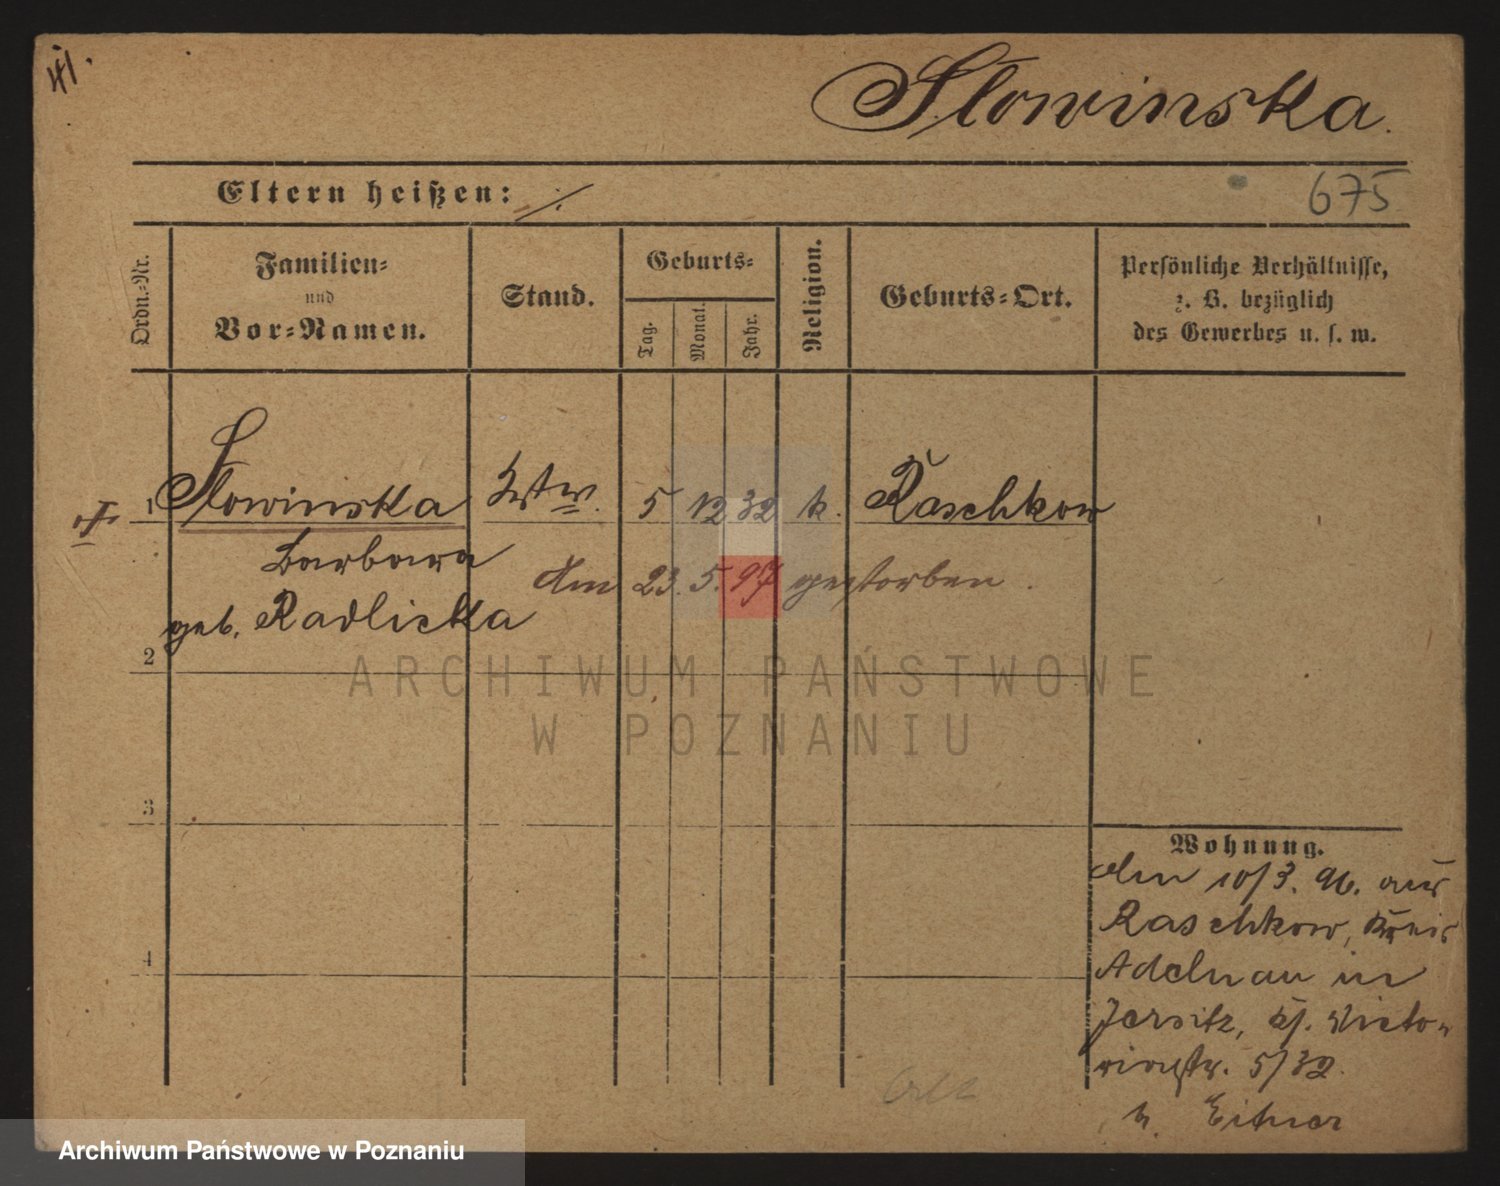 41.
Słowinska.
Eltern heißen: ./.
675
Ordn.-Nr.
Familien-
und
Vor-Namen.
Stand.
Geburts-
Tag.
Monat.
Jahr.
Religion.
Geburts-Ort.
Persönliche Verhältnisse,
z. B. bezüglich
des Gewerbes u. s. w.
1 Słowinska Wtw. 5 12 32 k. Raschkow
Barbara
Am 23. 5. 97 gestorben.
geb. Radlicka
2
3
4
Wohnung.
Am 10/3. 96. aus
Raschkow, Kreis
Adelnau in
Jersitz, Victo-
riastr. 5/32.
b. Eitner
ARCHIWUM PAŃSTWOWE
W POZNANIU
Archiwum Państwowe w Poznaniu